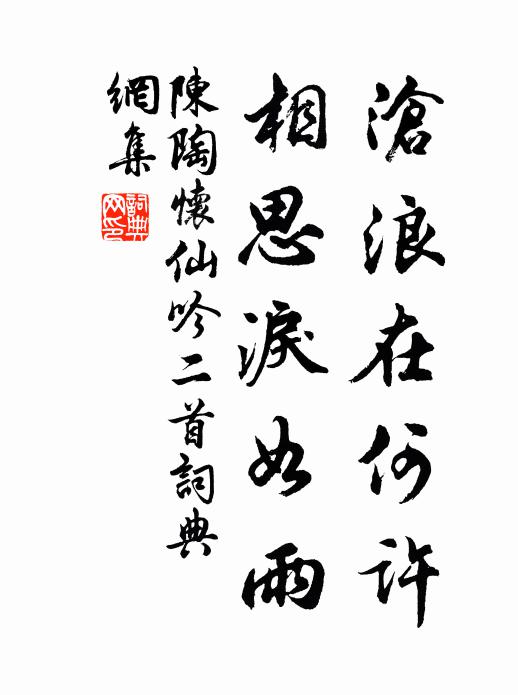 滄浪在何許
相思淚如雨
陳陶懷仙吟二首詞典
網集
詞典网印